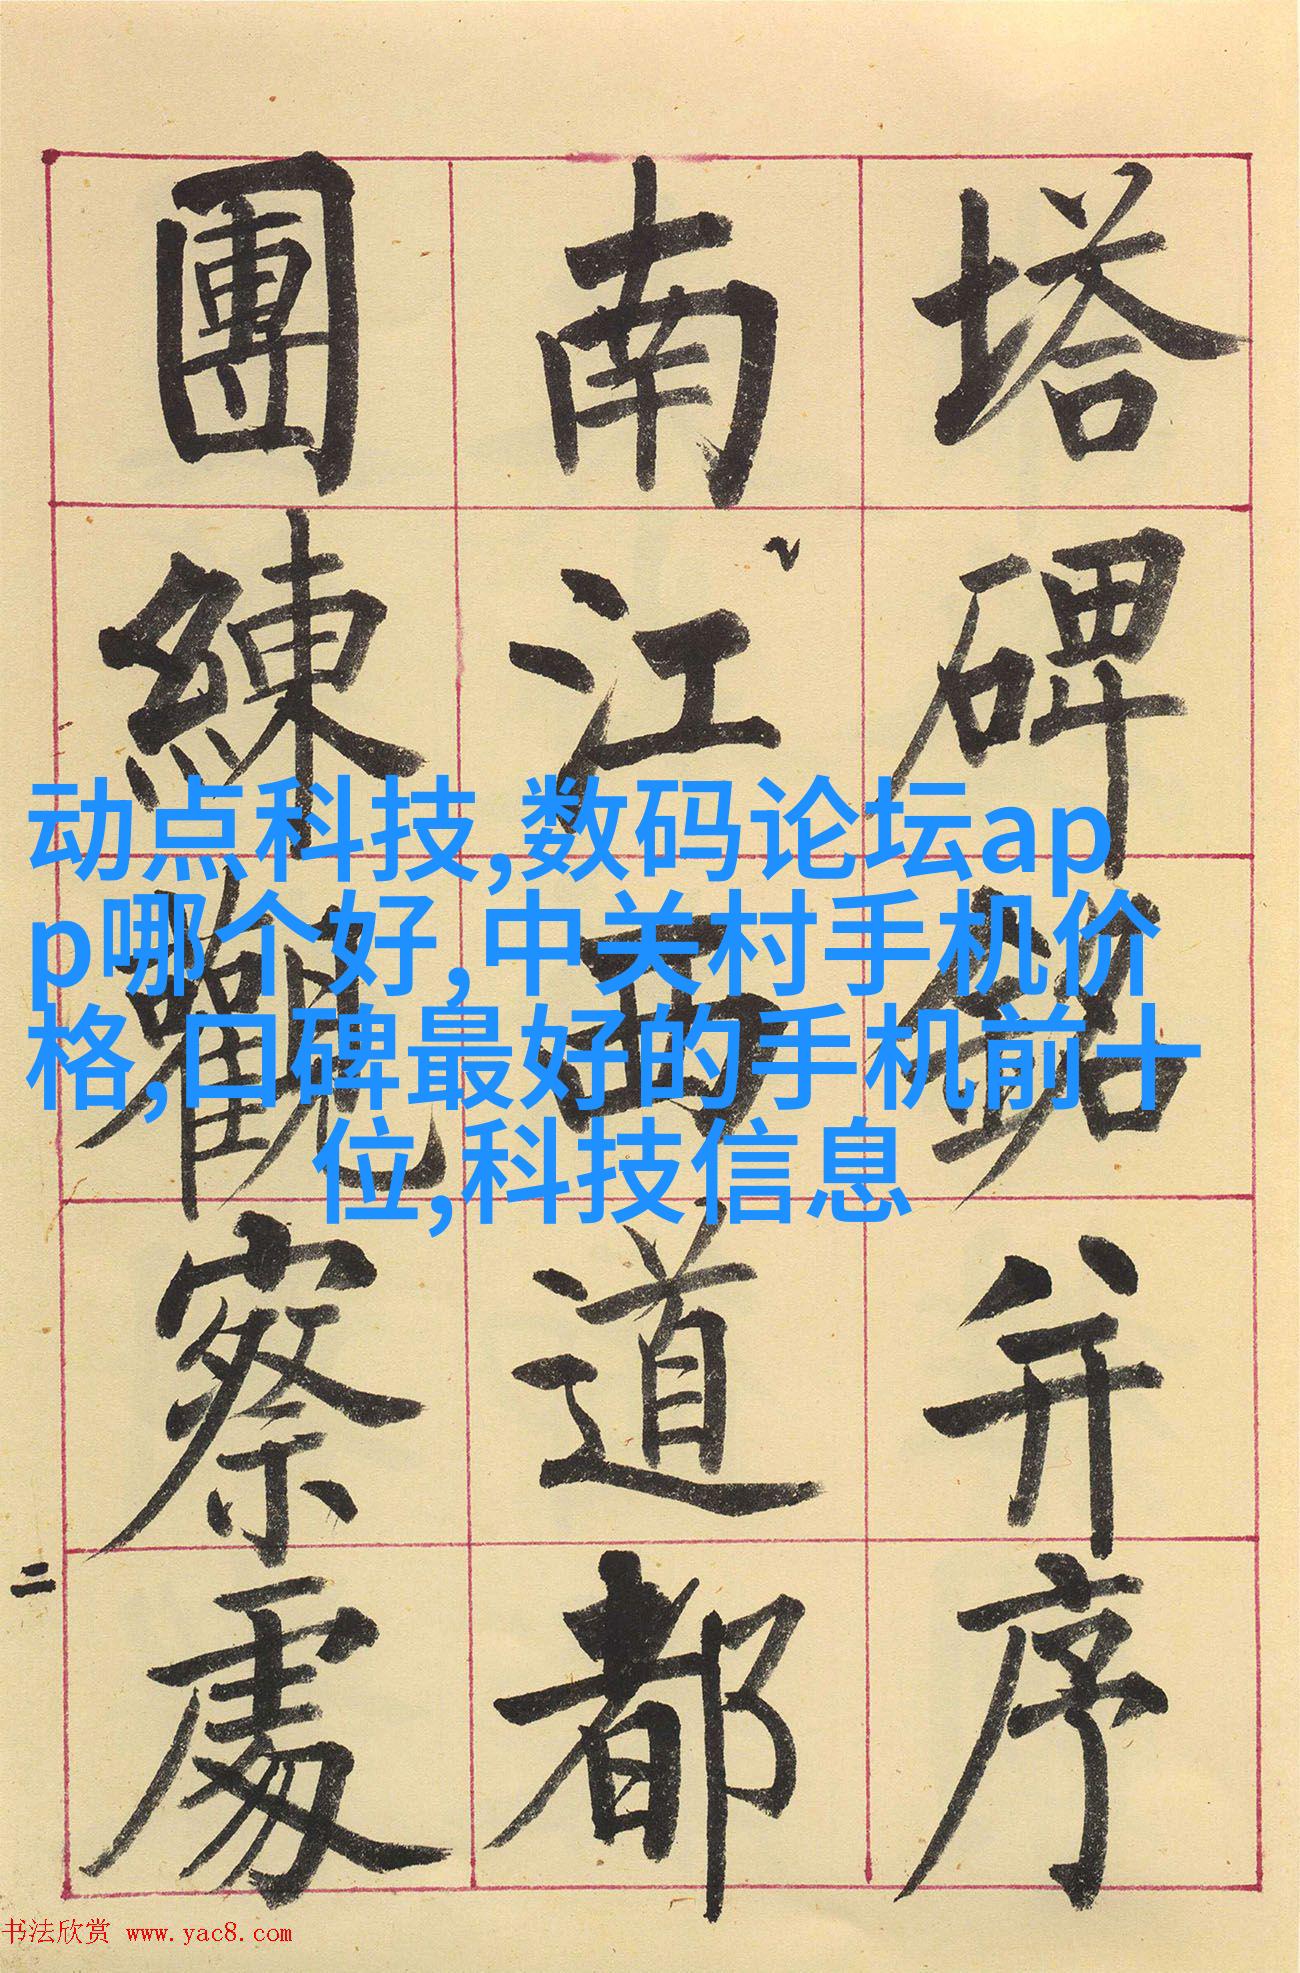 塔碑銘并序
南江西道都
團練觀察處
二
动点科技,数码论坛ap
p哪个好,中关村手机价
格,口碑最好的手机前十
位,科技信息
书法欣赏 www.yac8.com